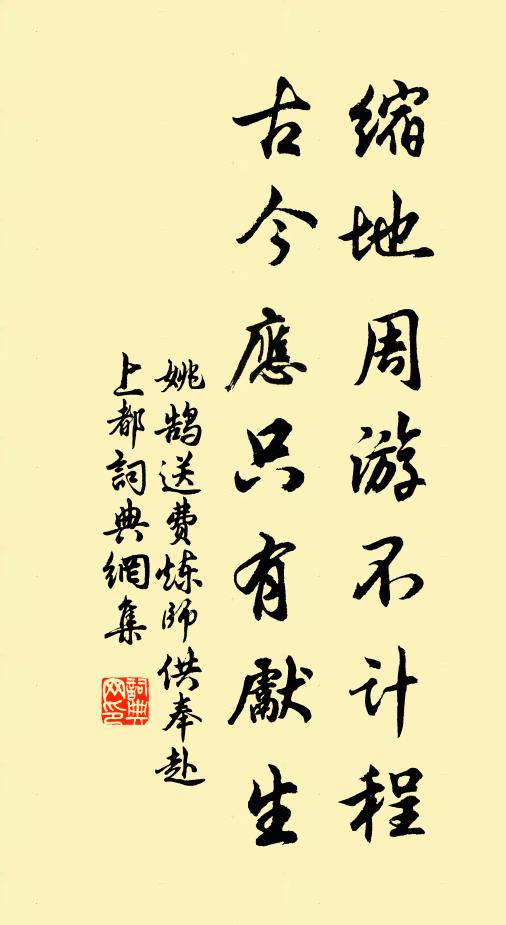 缩地周游不计程
古今應只有獻生
姚鹄送費炼师供奉赴
上都詞典網集
詞典网印